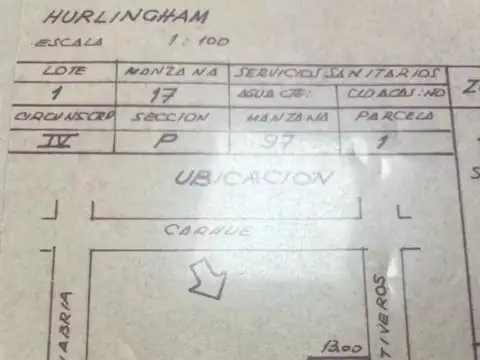 HURLINGHAM
ESCALA 1:100
LOTE MANZANA SERVICIOS SANITARIOS
1 17 AGUA CTE: CLOACAS:NO
CIRCUNSCRIP SECCION MANZANA PARCELA
IV P 97 1
UBICACION
TIVEROS
13.00